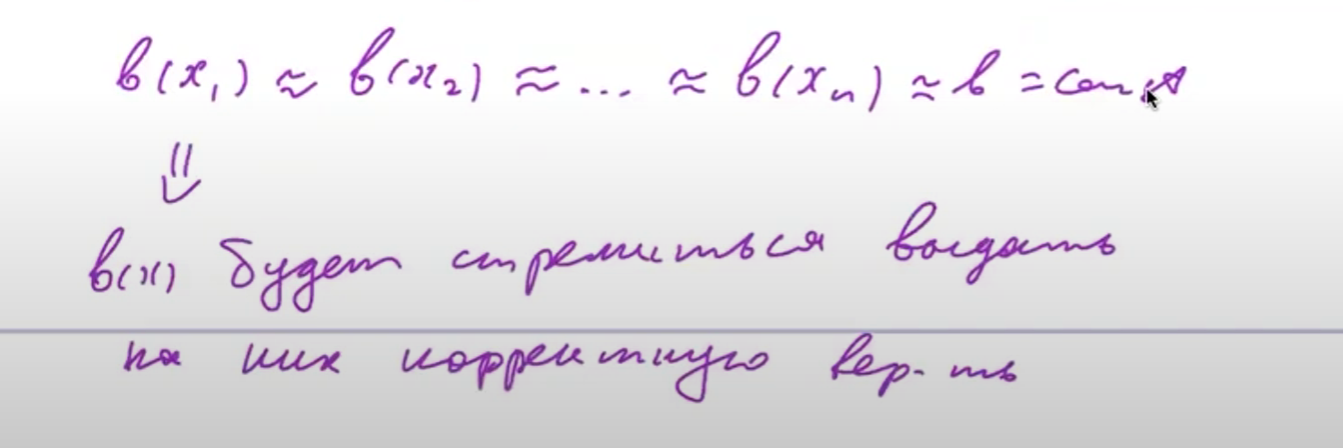 b(x₁) ≈ b(x₂) ≈ ... ≈ b(xₙ) ≈ b = const
⇓
b(x) будет стремиться выдать
на них корректную вер-ть